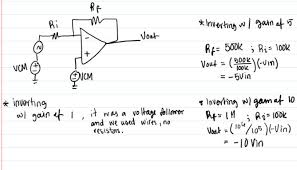 Ri
Rf
Vout
VCM
VCM
* Inverting w/ gain of 5
Rf = 500k ; Ri = 100k
Vout = (500k/100k)(-Vin)
= -5Vin
* inverting
w/ gain of 1 , it was a voltage follower
and we used wires, no
resistors.
* Inverting w/ gain of 10
Rf = 1M ; Ri = 100k
Vout = (10⁶/10⁵)(-Vin)
= -10Vin